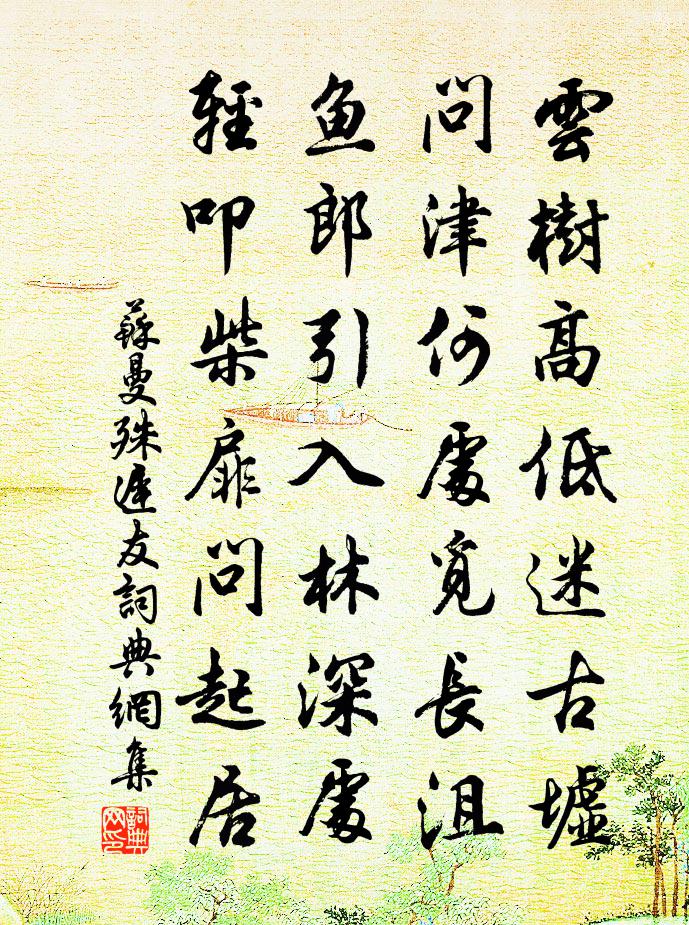 雲樹高低迷古墟
問津何處覓長沮
魚郎引入林深處
輕叩柴扉問起居
蘇曼殊遲友詞典網集
詞典网印